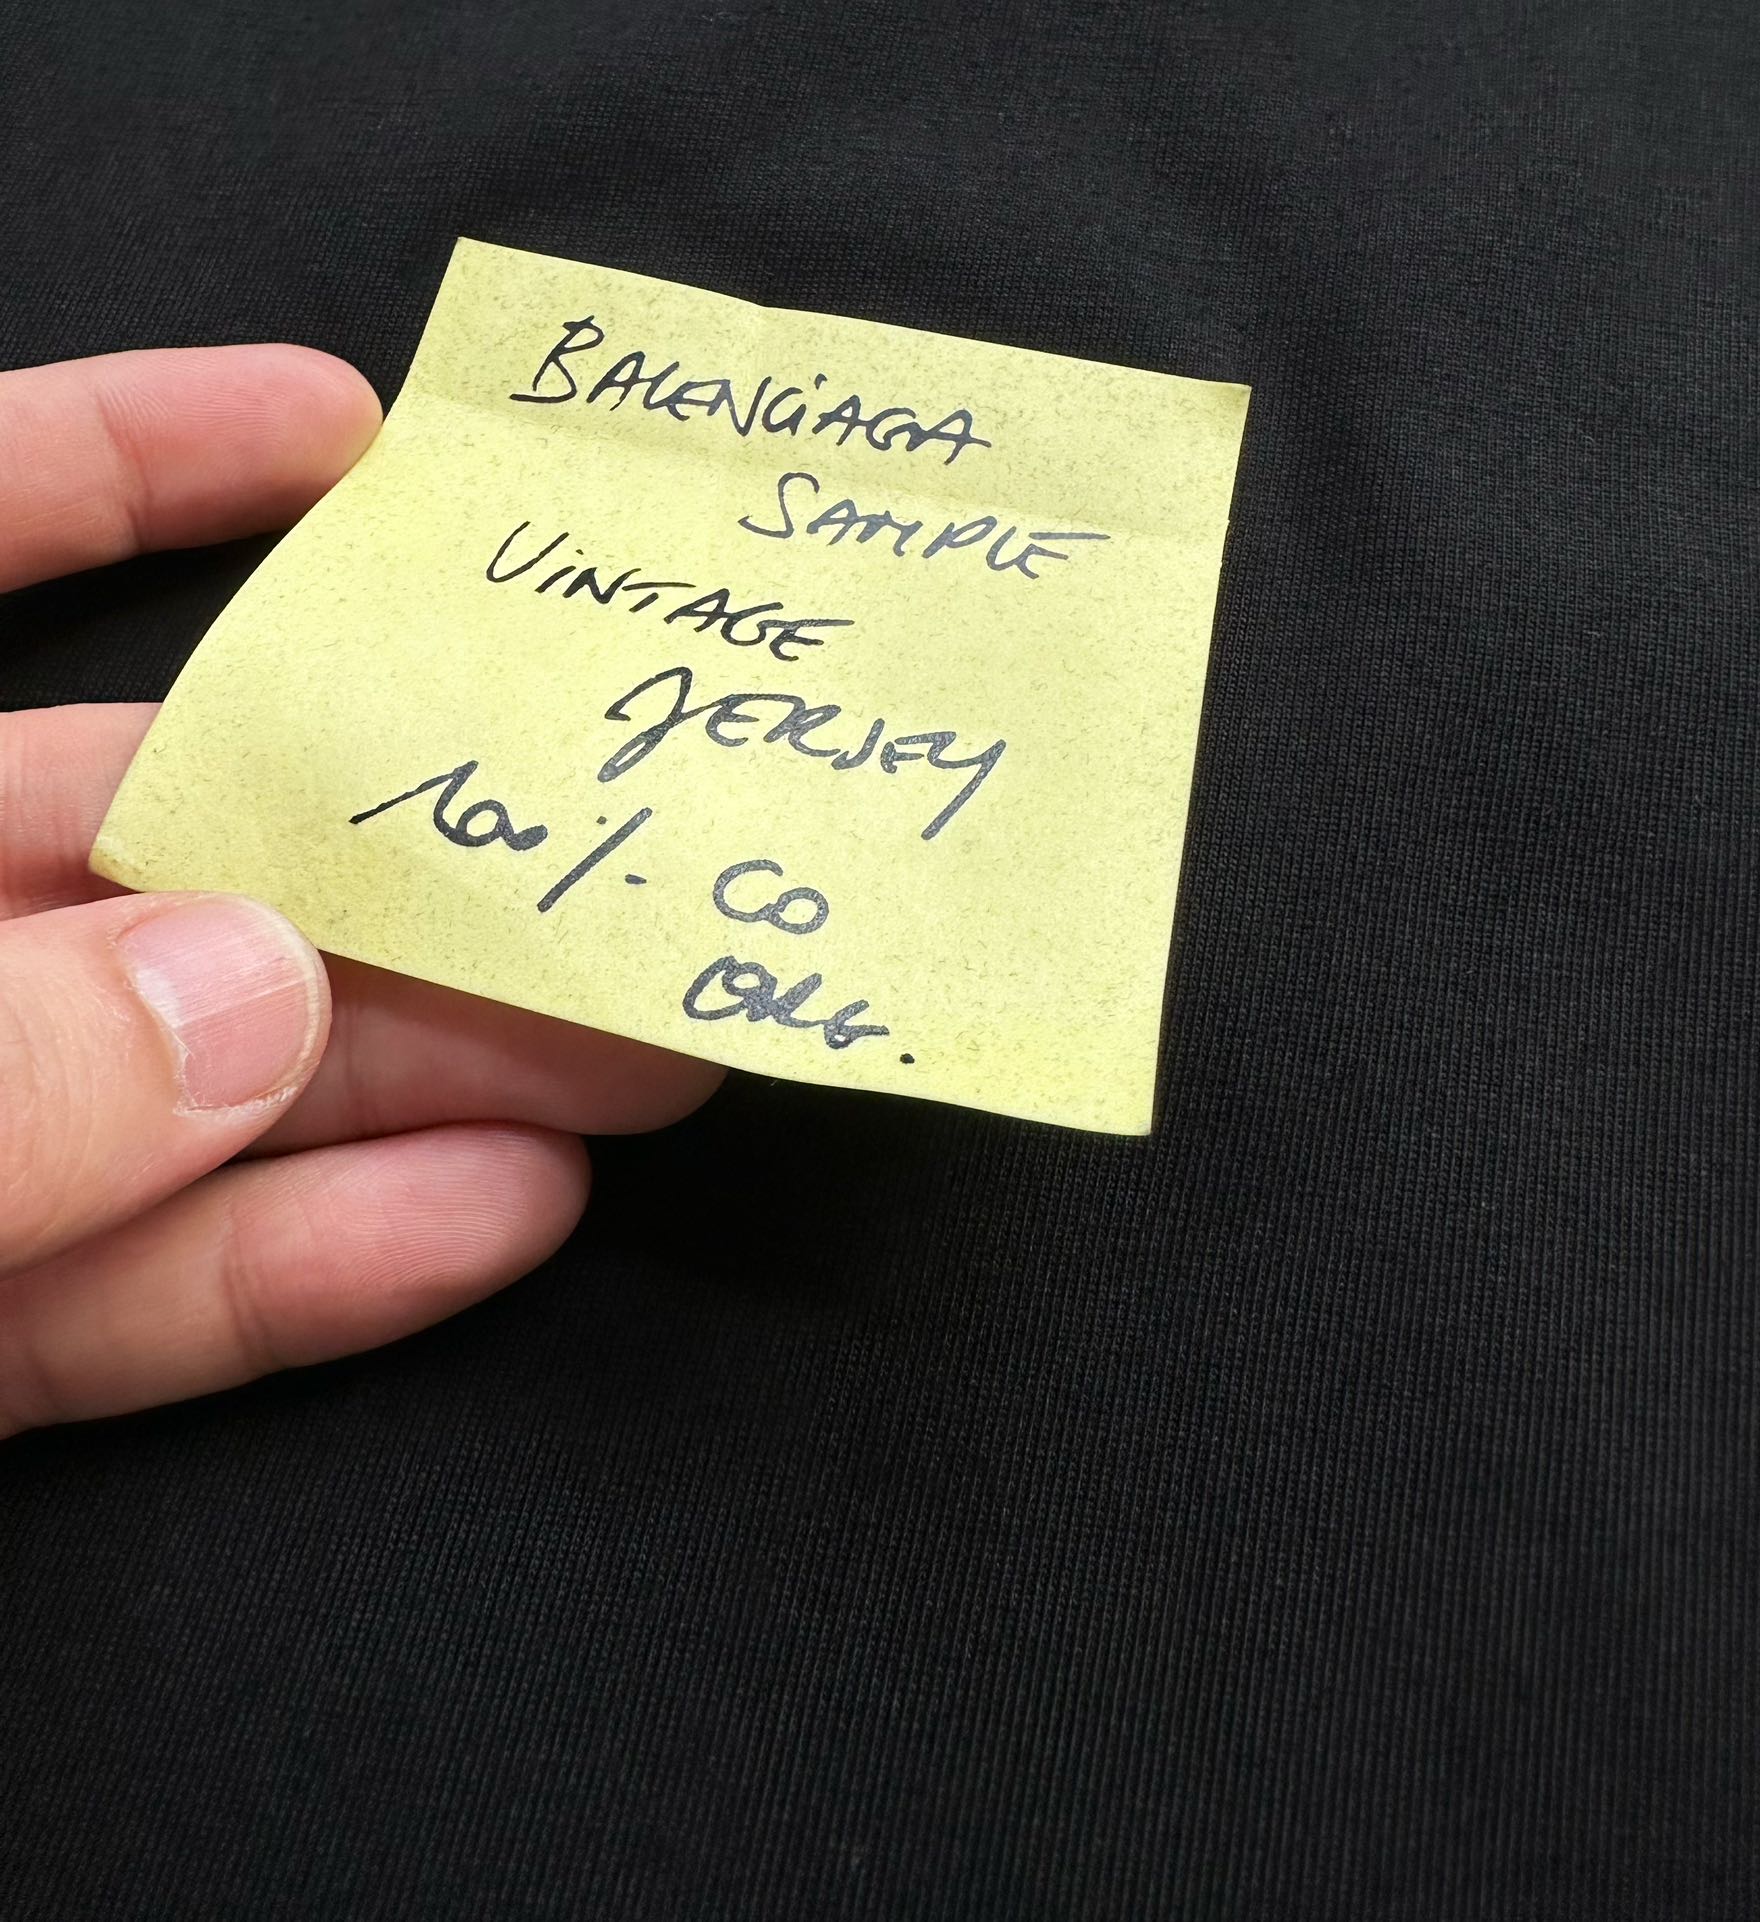 BALENCiAGA
SAMPLE
ViNTAGE
JERSEY
100% CO
ORG.